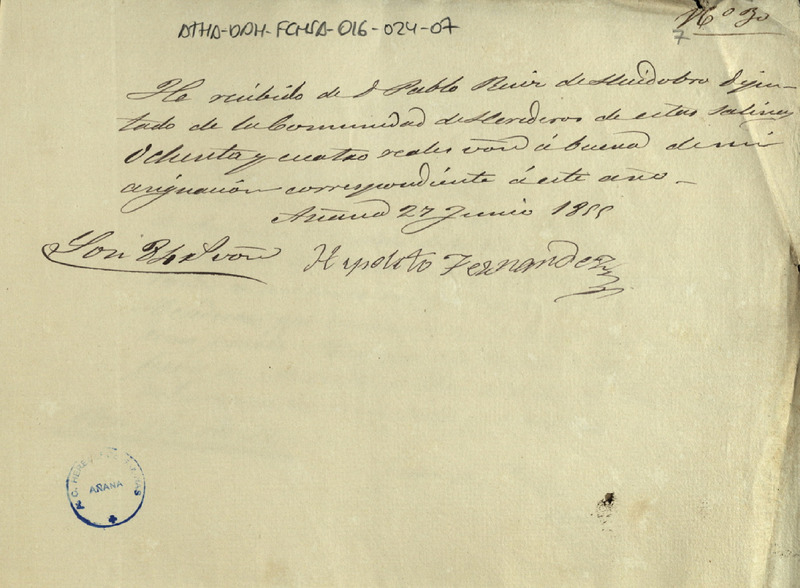 ATHA-DAH-FCHSA-016-024-07
Nº 30
7
He recibido de D Pablo Ruiz de Huidobro Dipu-
tado de la Comunidad de Herederos de estas Salinas
Ochenta y cuatro reales von á buena de mi
asignacion correspondiente á este año_
Añana 27 Junio 1855
Son 84 rs von
Hipolito Fernandez
AÑANA